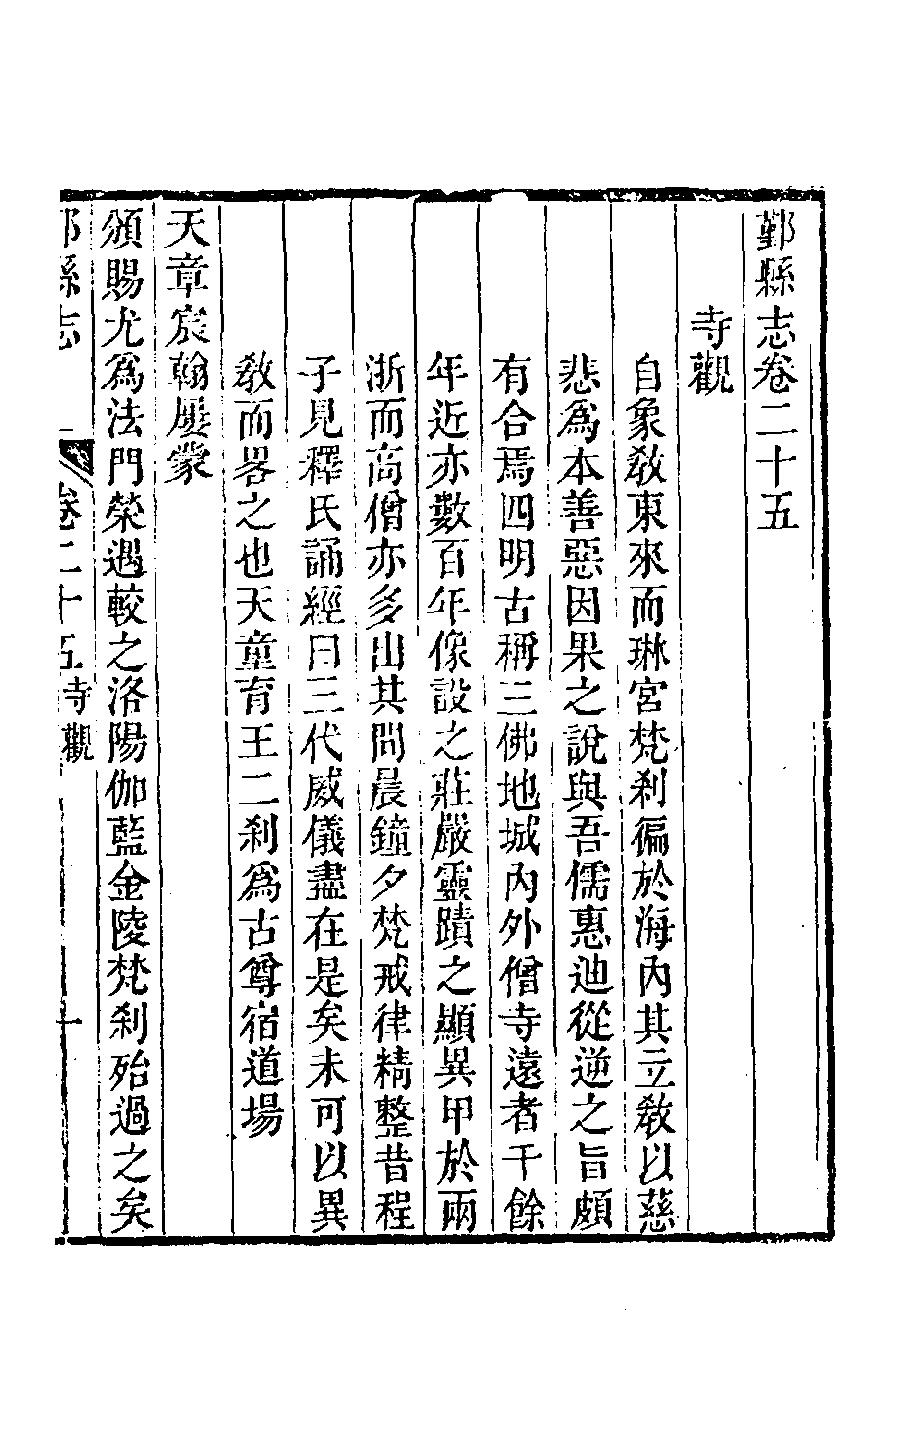 鄞縣志卷二十五
寺觀
自象敎東來而琳宮梵刹徧於海內其立敎以慈
悲爲本善惡因果之說與吾儒惠迪從逆之旨頗
有合焉四明古稱三佛地城內外僧寺遠者千餘
年近亦數百年像設之莊嚴靈蹟之顯異甲於兩
浙而高僧亦多出其間晨鐘夕梵戒律精整昔程
子見釋氏誦經曰三代威儀盡在是矣未可以異
敎而畧之也天童育王二刹爲古尊宿道場
天章宸翰屢蒙
頒賜尤爲法門榮遇較之洛陽伽藍金陵梵刹殆過之矣
鄞縣志 卷二十五 寺觀 一